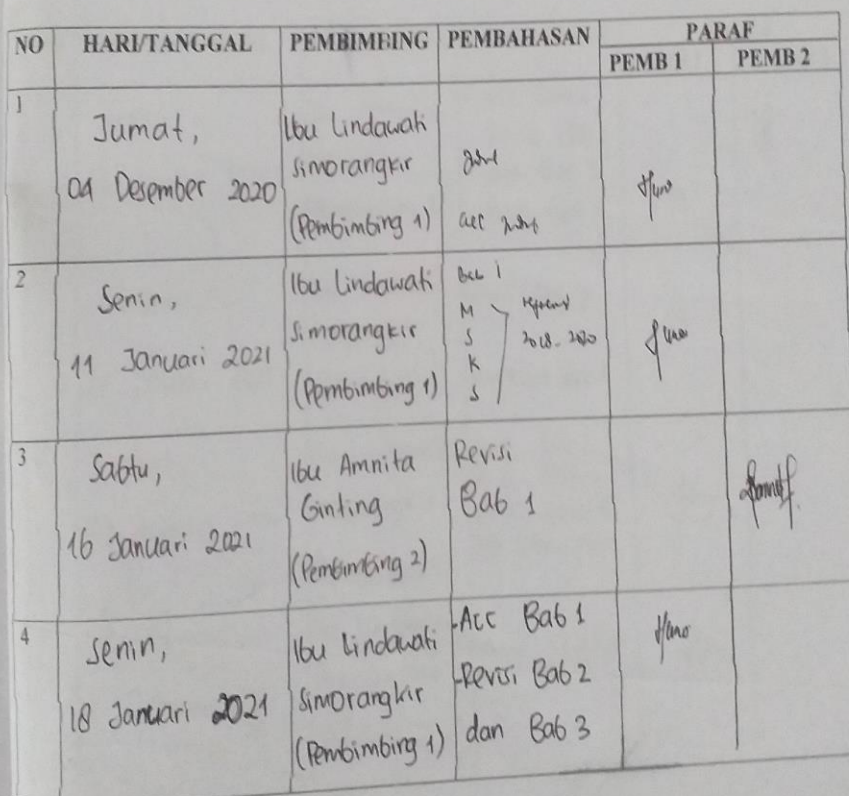 NO HARI/TANGGAL PEMBIMBING PEMBAHASAN PARAF
PEMB 1 PEMB 2
1
Jumat,
04 Desember 2020
Ibu Lindawati
Simorangkir
(Pembimbing 1)
acc
2
Senin,
11 Januari 2021
Ibu Lindawati
Simorangkir
(Pembimbing 1)
Bab 1
M
S
K
S
2018-2020
3
Sabtu,
16 Januari 2021
Ibu Amnita
Ginting
(Pembimbing 2)
Revisi
Bab 1
4
Senin,
18 Januari 2021
Ibu Lindawati
Simorangkir
(Pembimbing 1)
-Acc Bab 1
-Revisi Bab 2
dan Bab 3